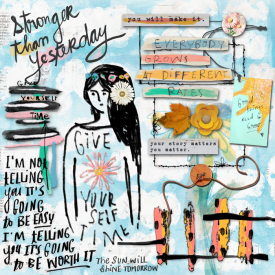 Stronger
than
yesterday
you will make it.
EVERYBODY
GROWS
AT DIFFERENT
RATES
GIVE
YOURSELF
TIME
GIVE
YOUR
SELF
TIME!
your story matters
you matter.
I'M NOT
TELLING
YOU IT'S
GOING
TO BE EASY
I'M TELLING
YOU IT'S GOING
TO BE WORTH IT
THE SUN WILL
SHINE TOMORROW